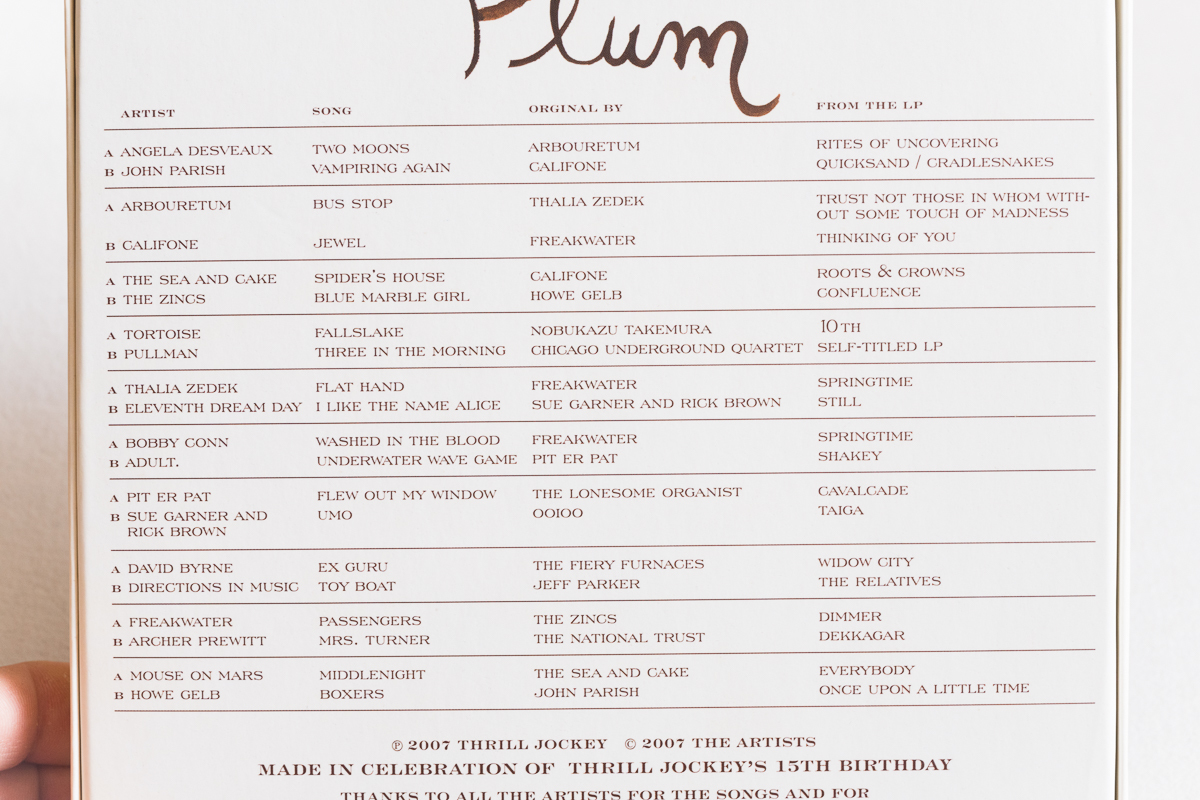 Plum
ARTIST SONG ORGINAL BY FROM THE LP
A ANGELA DESVEAUX TWO MOONS ARBOURETUM RITES OF UNCOVERING
B JOHN PARISH VAMPIRING AGAIN CALIFONE QUICKSAND / CRADLESNAKES
A ARBOURETUM BUS STOP THALIA ZEDEK TRUST NOT THOSE IN WHOM WITH-
OUT SOME TOUCH OF MADNESS
B CALIFONE JEWEL FREAKWATER THINKING OF YOU
A THE SEA AND CAKE SPIDER'S HOUSE CALIFONE ROOTS & CROWNS
B THE ZINCS BLUE MARBLE GIRL HOWE GELB CONFLUENCE
A TORTOISE FALLSLAKE NOBUKAZU TAKEMURA 10TH
B PULLMAN THREE IN THE MORNING CHICAGO UNDERGROUND QUARTET SELF-TITLED LP
A THALIA ZEDEK FLAT HAND FREAKWATER SPRINGTIME
B ELEVENTH DREAM DAY I LIKE THE NAME ALICE SUE GARNER AND RICK BROWN STILL
A BOBBY CONN WASHED IN THE BLOOD FREAKWATER SPRINGTIME
B ADULT. UNDERWATER WAVE GAME PIT ER PAT SHAKEY
A PIT ER PAT FLEW OUT MY WINDOW THE LONESOME ORGANIST CAVALCADE
B SUE GARNER AND UMO OOIOO TAIGA
RICK BROWN
A DAVID BYRNE EX GURU THE FIERY FURNACES WIDOW CITY
B DIRECTIONS IN MUSIC TOY BOAT JEFF PARKER THE RELATIVES
A FREAKWATER PASSENGERS THE ZINCS DIMMER
B ARCHER PREWITT MRS. TURNER THE NATIONAL TRUST DEKKAGAR
A MOUSE ON MARS MIDDLENIGHT THE SEA AND CAKE EVERYBODY
B HOWE GELB BOXERS JOHN PARISH ONCE UPON A LITTLE TIME
℗ 2007 THRILL JOCKEY © 2007 THE ARTISTS
MADE IN CELEBRATION OF THRILL JOCKEY'S 15TH BIRTHDAY
THANKS TO ALL THE ARTISTS FOR THE SONGS AND FOR